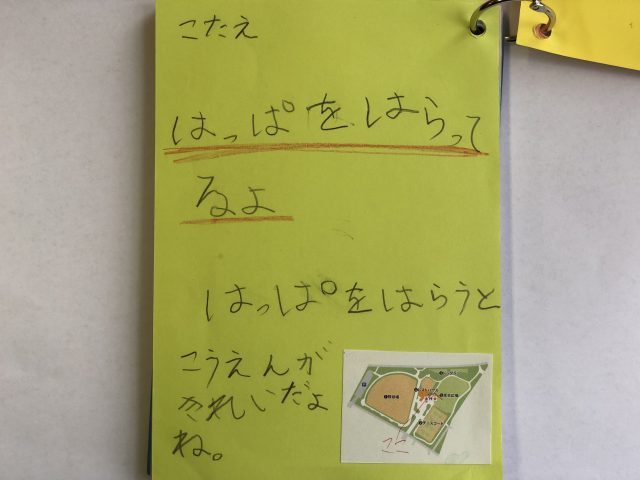 こたえ
はっぱをはらって
るよ
はっぱをはらうと
こうえんが
きれいだよ
ね。
ここ